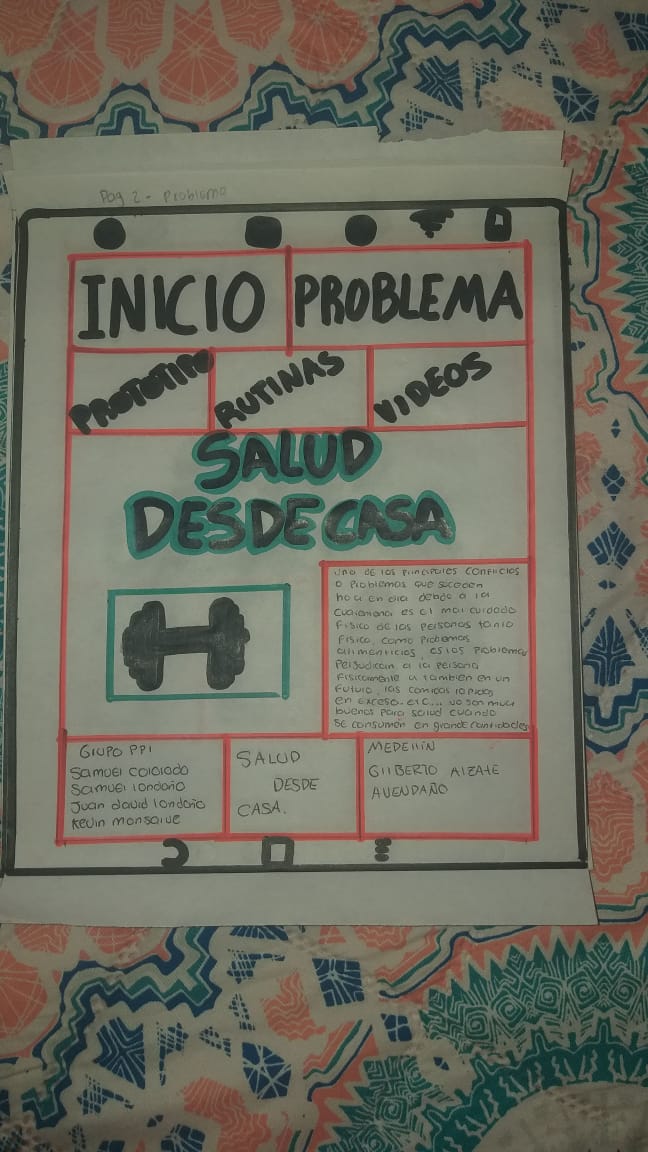 Pag 2 - Problema
INICIO
PROBLEMA
PROTOTIPO
RUTINAS
VIDEOS
SALUD
DESDE CASA
Uno de los principales conflictos
o problemas que suceden
hoy en dia debdo a la
cuarentena es el mal cuidado
fisico de las personas tanto
fisico, como problemas
alimenticios, estos problemas
perjudican a la persona
fisicamente y tambien en un
futuro, las comidas rapidas
en exceso. etc... no son muy
buenas para salud cuando
se consumen en grande cantidades
Grupo PPI
Samuel colorado
Samuel londoño
Juan david londoño
Kevin monsalve
SALUD
DESDE
CASA.
MEDELLIN
GILBERTO ALZATE
AVENDAÑO